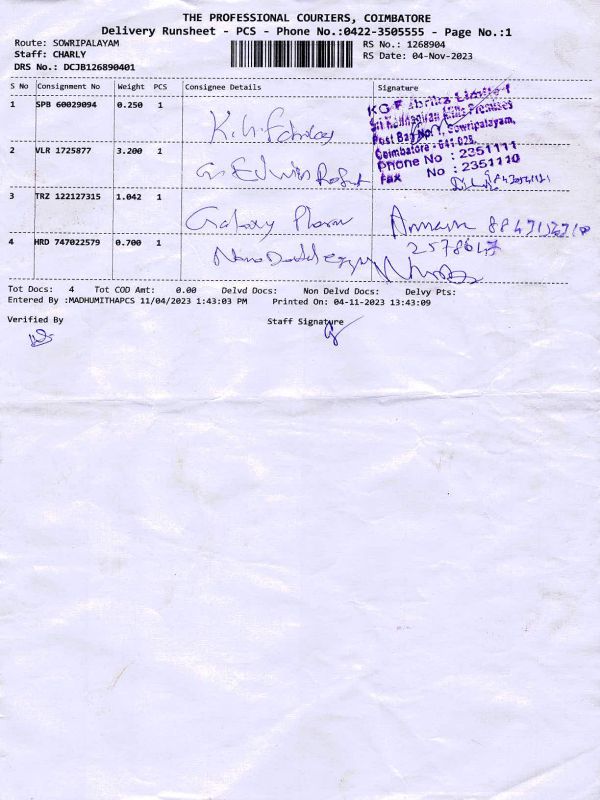 THE PROFESSIONAL COURIERS, COIMBATORE
Delivery Runsheet - PCS - Phone No.:0422-3505555 - Page No.:1
Route: SOWRIPALAYAM RS No.: 1268904
Staff: CHARLY RS Date: 04-Nov-2023
DRS No.: DCJB126890401
S No Consignment No Weight PCS Consignee Details Signature
1 SPB 60029094 0.250 1
KG Fabriks Limited
Sri Kannapiran Mills Premises
Post Bag No.1, Sowripalayam,
Coimbatore - 641 028.
Phone No : 2351111
Fax No : 2351110
2 VLR 1725877 3.200 1 G. Edwin
3 TRZ 122127315 1.042 1 Galaxy Pharm
4 HRD 747022579 0.700 1
Tot Docs: 4 Tot COD Amt: 0.00 Delvd Docs: Non Delvd Docs: Delvy Pts:
Entered By :MADHUMITHAPCS 11/04/2023 1:43:03 PM Printed On: 04-11-2023 13:43:09
Verified By Staff Signature